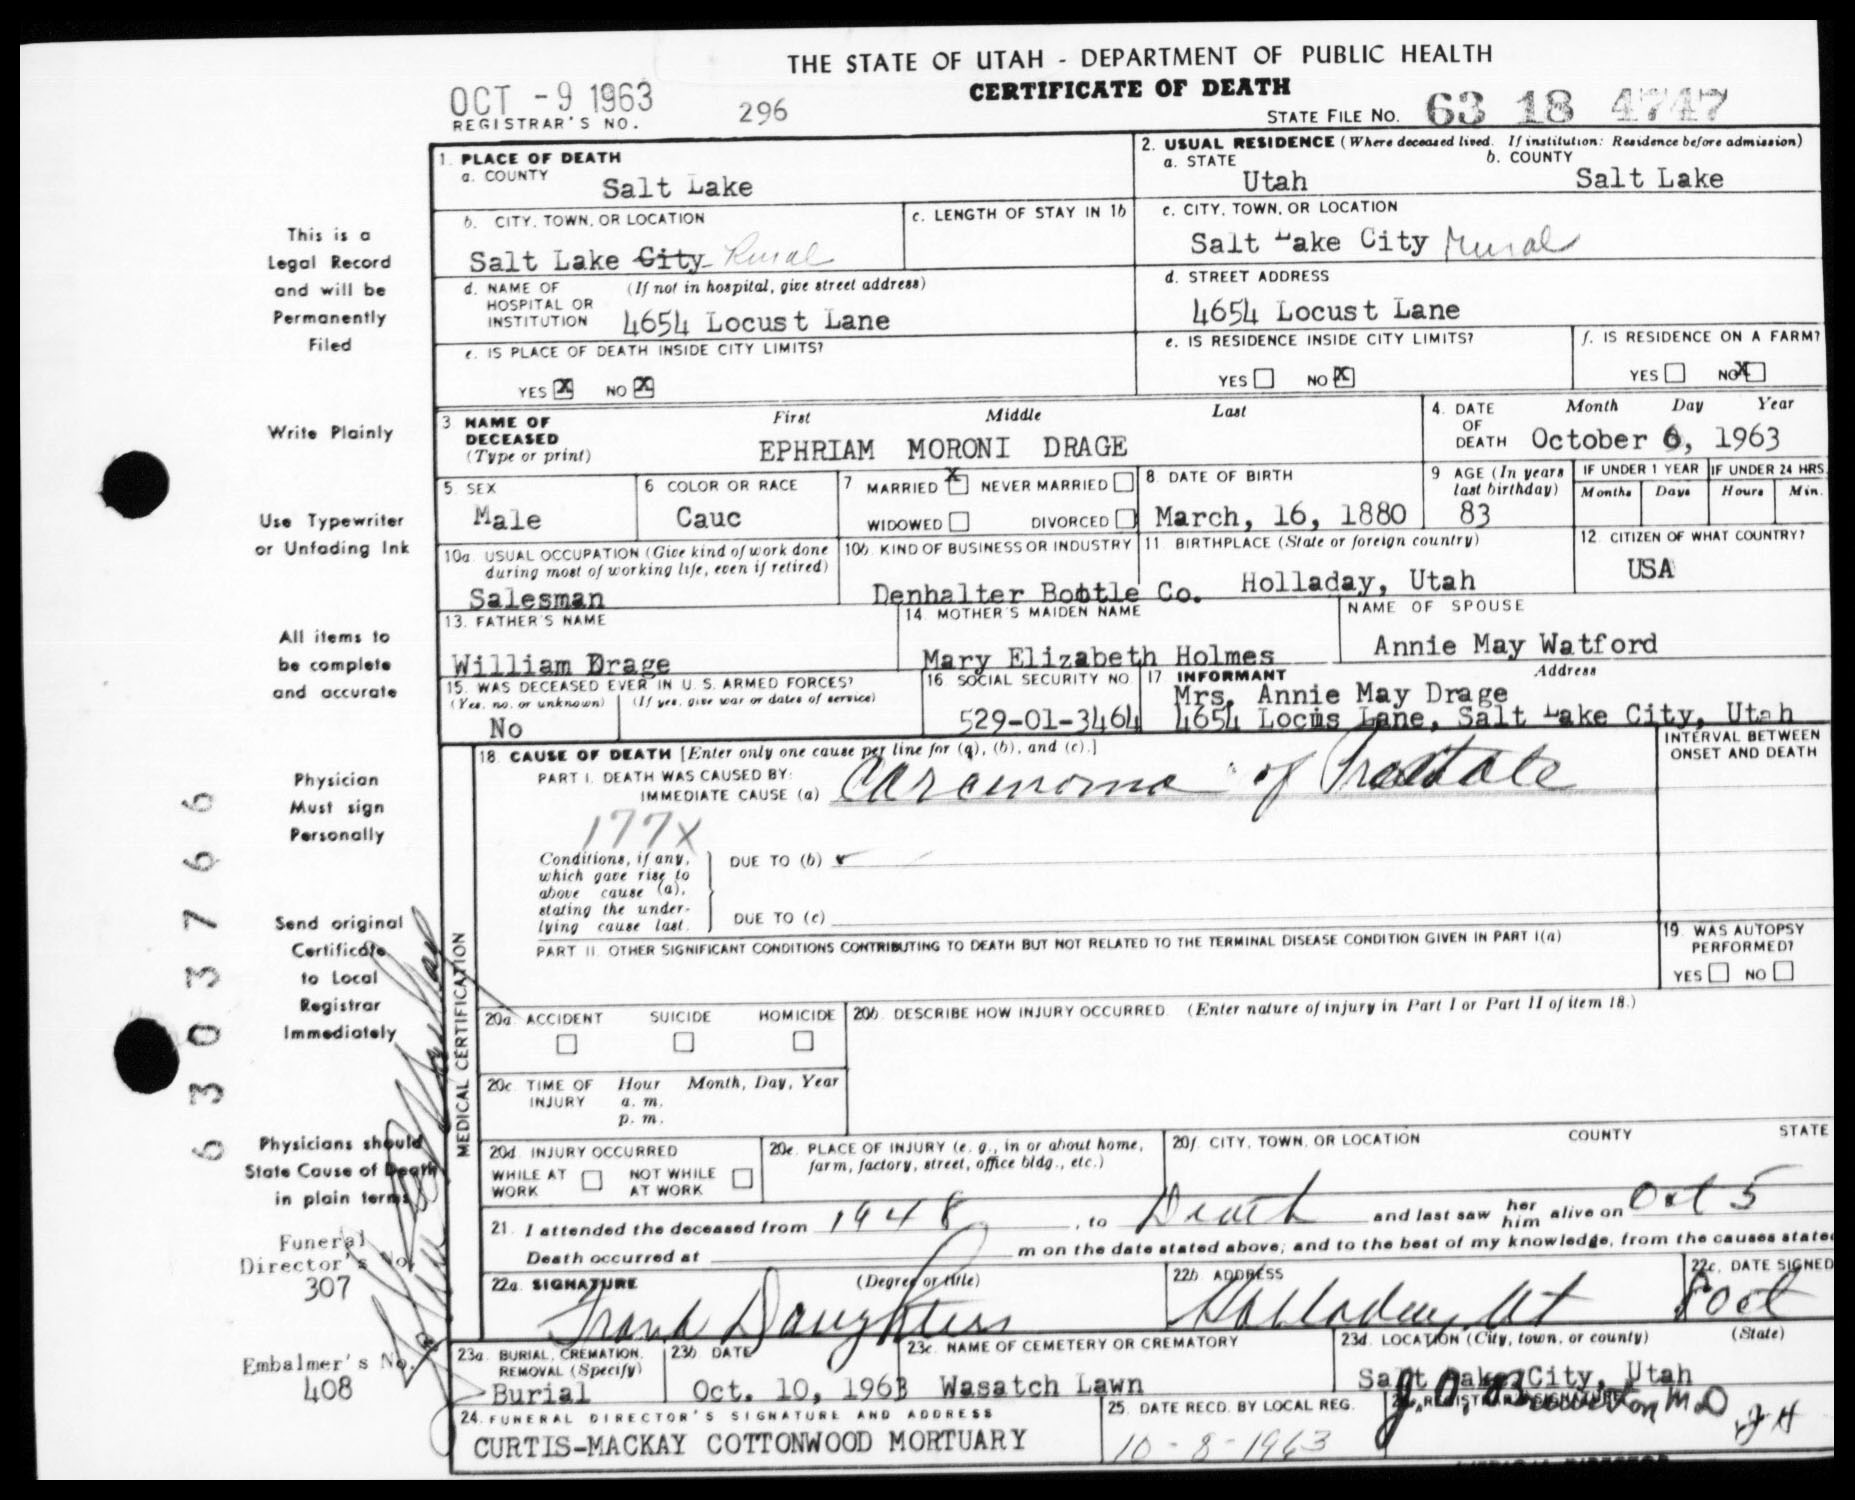 THE STATE OF UTAH - DEPARTMENT OF PUBLIC HEALTH
CERTIFICATE OF DEATH
OCT -9 1963
REGISTRAR'S NO. 296
STATE FILE NO. 63 18 4747
1. PLACE OF DEATH
a. COUNTY Salt Lake
2. USUAL RESIDENCE (Where deceased lived. If institution: Residence before admission)
a. STATE Utah b. COUNTY Salt Lake
b. CITY, TOWN, OR LOCATION Salt Lake City Rural
c. LENGTH OF STAY IN 1b
c. CITY, TOWN, OR LOCATION
Salt Lake City Rural
d. NAME OF HOSPITAL OR INSTITUTION (If not in hospital, give street address)
4654 Locust Lane
d. STREET ADDRESS
4654 Locust Lane
e. IS PLACE OF DEATH INSIDE CITY LIMITS?
YES X NO X
e. IS RESIDENCE INSIDE CITY LIMITS?
YES NO X
f. IS RESIDENCE ON A FARM?
YES NO X
3 NAME OF DECEASED (Type or print)
First Middle Last
EPHRIAM MORONI DRAGE
4. DATE OF DEATH Month Day Year
October 6, 1963
5 SEX
Male
6 COLOR OR RACE
Cauc
7 MARRIED X NEVER MARRIED
WIDOWED DIVORCED
8. DATE OF BIRTH
March, 16, 1880
9 AGE (In years last birthday)
83
IF UNDER 1 YEAR IF UNDER 24 HRS.
Months Days Hours Min.
10a. USUAL OCCUPATION (Give kind of work done during most of working life, even if retired)
Salesman
10b. KIND OF BUSINESS OR INDUSTRY
Denhalter Bottle Co.
11. BIRTHPLACE (State or foreign country)
Holladay, Utah
12. CITIZEN OF WHAT COUNTRY?
USA
13. FATHER'S NAME
William Drage
14. MOTHER'S MAIDEN NAME
Mary Elizabeth Holmes
NAME OF SPOUSE
Annie May Watford
15. WAS DECEASED EVER IN U. S. ARMED FORCES?
(Yes, no. or unknown) (If yes, give war or dates of service)
No
16. SOCIAL SECURITY NO.
529-01-3464
17 INFORMANT Address
Mrs. Annie May Drage
4654 Locus Lane, Salt Lake City, Utah
18. CAUSE OF DEATH [Enter only one cause per line for (a), (b), and (c).]
INTERVAL BETWEEN ONSET AND DEATH
PART I. DEATH WAS CAUSED BY:
IMMEDIATE CAUSE (a) Carcinoma of Prostate
177X
Conditions, if any, which gave rise to above cause (a), stating the underlying cause last.
DUE TO (b)
DUE TO (c)
PART II. OTHER SIGNIFICANT CONDITIONS CONTRIBUTING TO DEATH BUT NOT RELATED TO THE TERMINAL DISEASE CONDITION GIVEN IN PART I(a)
19. WAS AUTOPSY PERFORMED?
YES NO
MEDICAL CERTIFICATION
20a. ACCIDENT SUICIDE HOMICIDE
20b. DESCRIBE HOW INJURY OCCURRED. (Enter nature of injury in Part I or Part II of item 18.)
20c. TIME OF INJURY Hour Month, Day, Year
a. m.
p. m.
20d. INJURY OCCURRED
WHILE AT WORK NOT WHILE AT WORK
20e. PLACE OF INJURY (e. g., in or about home, farm, factory, street, office bldg., etc.)
20f. CITY, TOWN, OR LOCATION COUNTY STATE
21. I attended the deceased from 1948, to Death and last saw her him alive on Oct 5
Death occurred at m on the date stated above; and to the best of my knowledge, from the causes stated
22a. SIGNATURE (Degree or title)
22b. ADDRESS
Holladay, Ut
22c. DATE SIGNED
8 Oct
23a. BURIAL, CREMATION, REMOVAL (Specify)
Burial
23b. DATE
Oct. 10, 1963
23c. NAME OF CEMETERY OR CREMATORY
Wasatch Lawn
23d. LOCATION (City, town, or county) (State)
Salt Lake City, Utah
24. FUNERAL DIRECTOR'S SIGNATURE AND ADDRESS
CURTIS-MACKAY COTTONWOOD MORTUARY
25. DATE RECD. BY LOCAL REG.
10-8-1963
REGISTRAR'S SIGNATURE
This is a
Legal Record
and will be
Permanently
Filed
Write Plainly
Use Typewriter
or Unfading Ink
All items to
be complete
and accurate
Physician
Must sign
Personally
Send original
Certificate
to Local
Registrar
Immediately
Physicians should
State Cause of Death
in plain terms
Funeral
Director's No.
307
Embalmer's No.
408
6303766